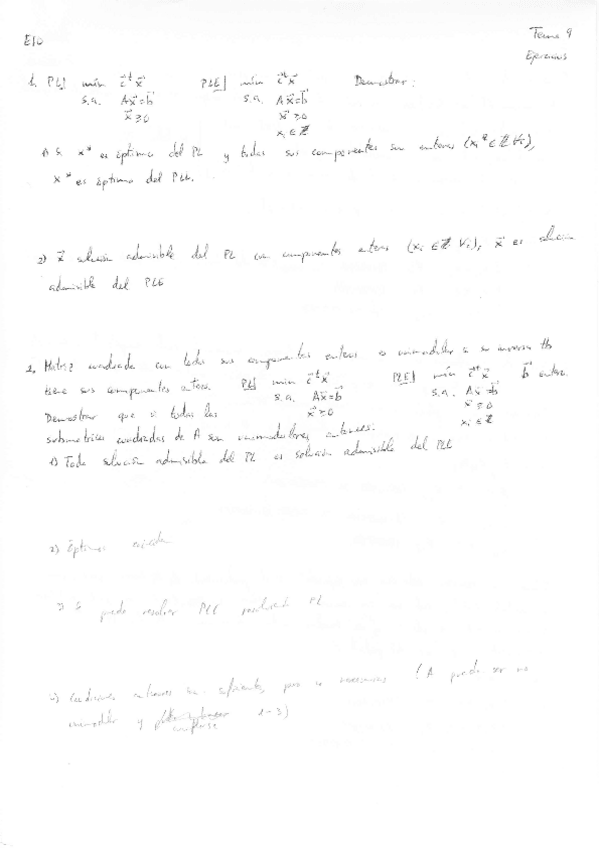 EIO
Tema 9
Ejercicios
1. PL] mín c⃗ᵗx⃗ PLE] mín c⃗ᵗx⃗ Demostrar:
s.a. Ax⃗=b⃗ s.a. Ax⃗=b⃗
x⃗≥0 x⃗≥0
xᵢ∈ℤ
1) Si x* es óptimo del PL y todas sus componentes son enteras (xᵢ*∈ℤ ∀i),
x* es óptimo del PLE.
2) x⃗ solución admisible del PL con componentes enteras (xᵢ∈ℤ ∀i), x⃗ es solución
admisible del PLE
2. Matriz cuadrada con todas sus componentes enteras es unimodular si su inversa tb
tiene sus componentes enteras. PL] mín c⃗ᵗx⃗ PLE] mín c⃗ᵗx⃗ b⃗ entero.
s.a. Ax⃗=b⃗ s.a. Ax⃗=b⃗
Demostrar que si todas las x⃗≥0 x⃗≥0
submatrices cuadradas de A son unimodulares, entonces: xᵢ∈ℤ
1) Toda solución admisible del PL es solución admisible del PLE
2) Óptimos
3) Se puede resolver PLE resolviendo PL
4) Condiciones anteriores son suficientes pero no necesarias (A puede ser no
unimodular y cumplirse 1-3)